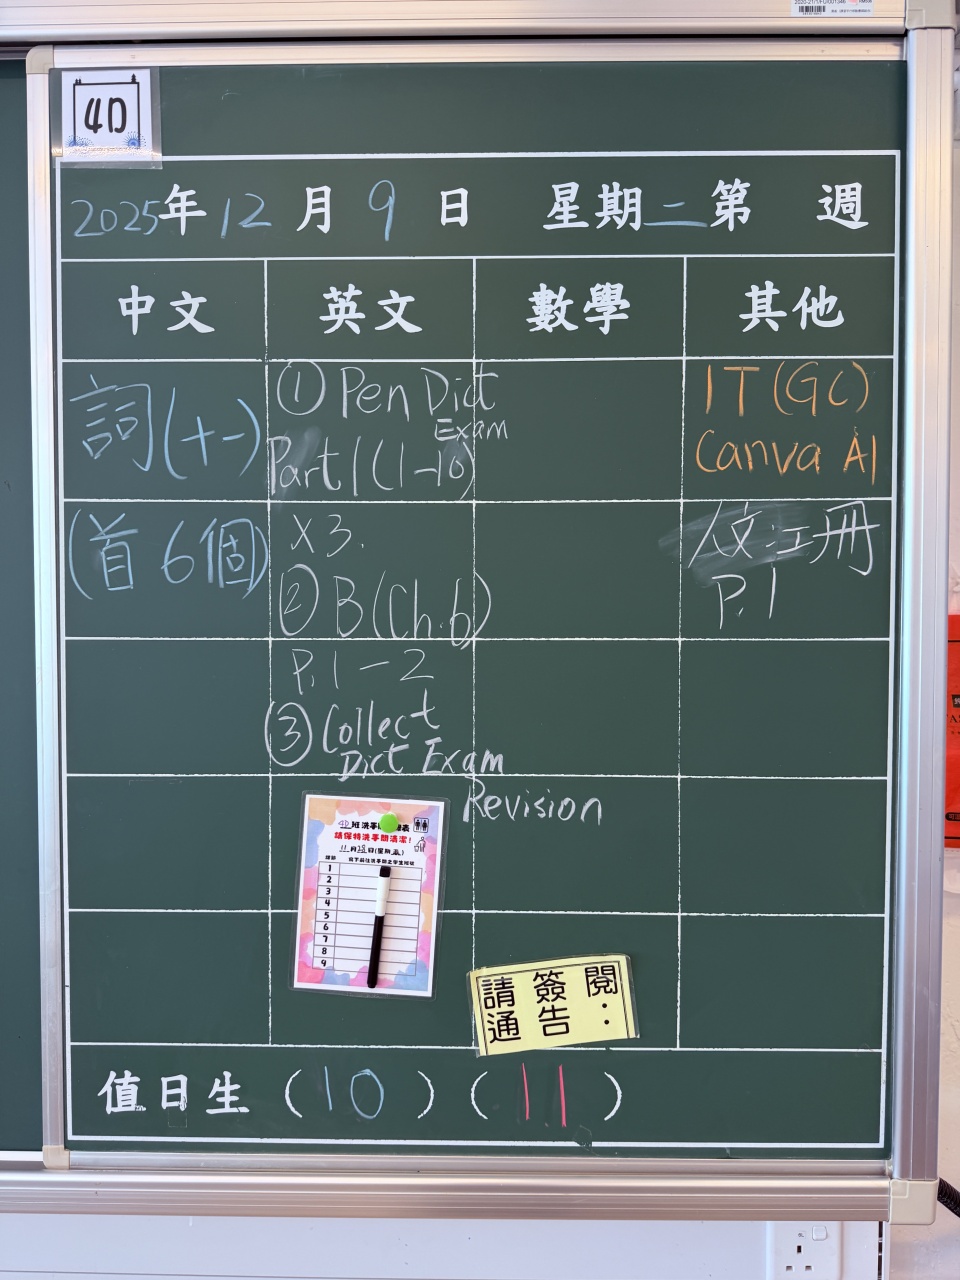 4D
2025年12月9日 星期二 第 週
中文 英文 數學 其他
詞(十一)
(首6個)
① Pen Dict
Exam
Part 1 (1-10)
X 3.
② B (Ch.6)
P.1-2
③ Collect
Dict Exam
Revision
IT (GC)
Canva AI
人文工冊
P.1
4D班洗手間
請保持洗手間清潔!
11月28日(星期五)
1
2
3
4
5
6
7
8
9
請簽閱
通告:
值日生 (10) (11)